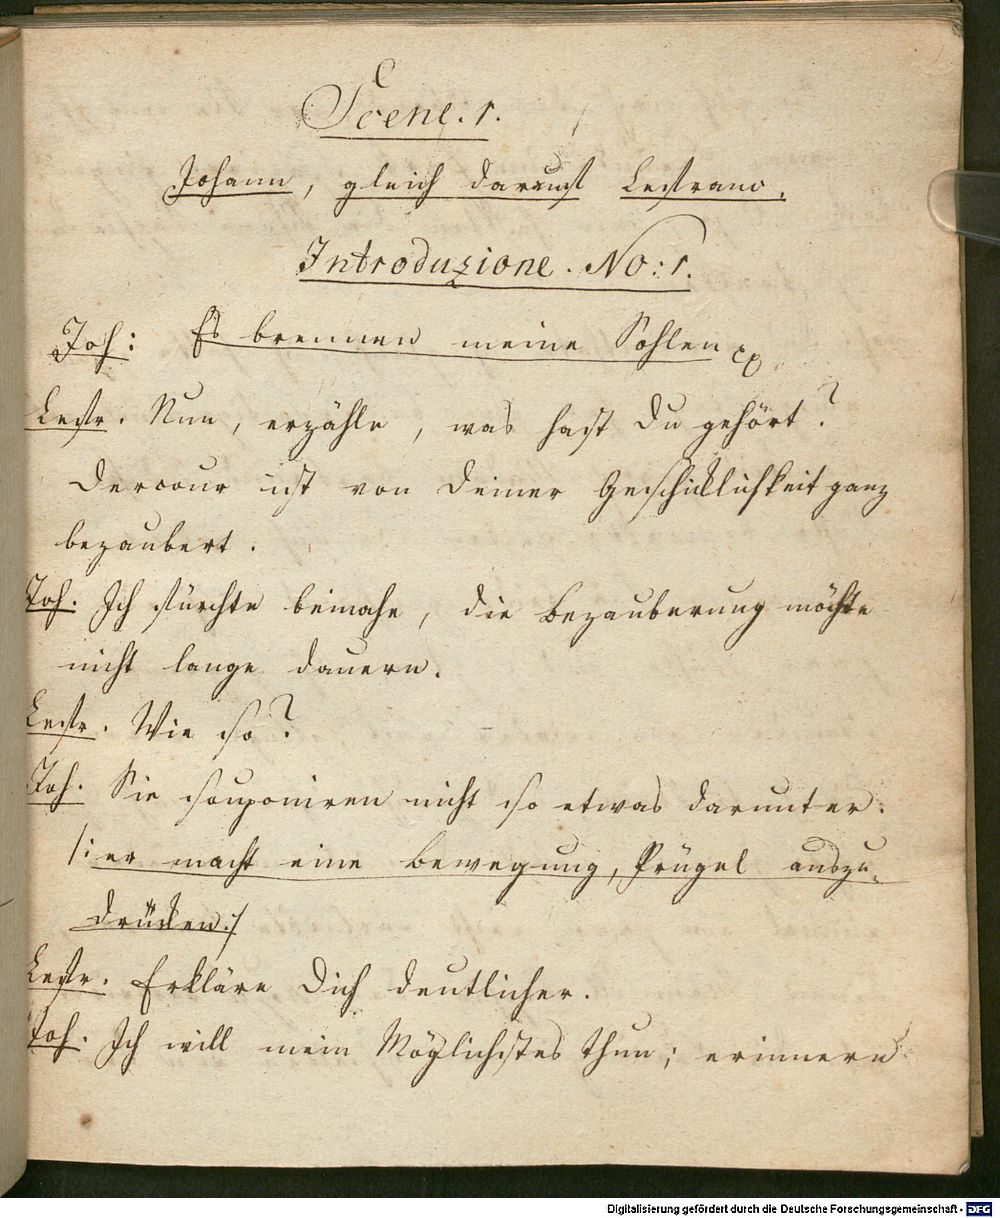 Scene. 1.
Johann, gleich darauf Lestrano.
Introduzione. No: 1.
Joh: Es brennen meine Sohlen
Lestr. Nun, erzähle, was hast Du gehört?
Dervour ist von Deiner Geschicklichkeit ganz
bezaubert.
Joh. Ich fürchte beinahe, die Bezauberung möchte
nicht lange dauern.
Lestr. Wie so?
Joh. Sie souponiren nicht so etwas darunter.
/: er macht eine Bewegung, Prügel auszu-
drücken :/
Lestr. Erkläre Dich deutlicher.
Joh. Ich will mein Möglichstes thun; erinnern
Digitalisierung gefördert durch die Deutsche Forschungsgemeinschaft - DFG